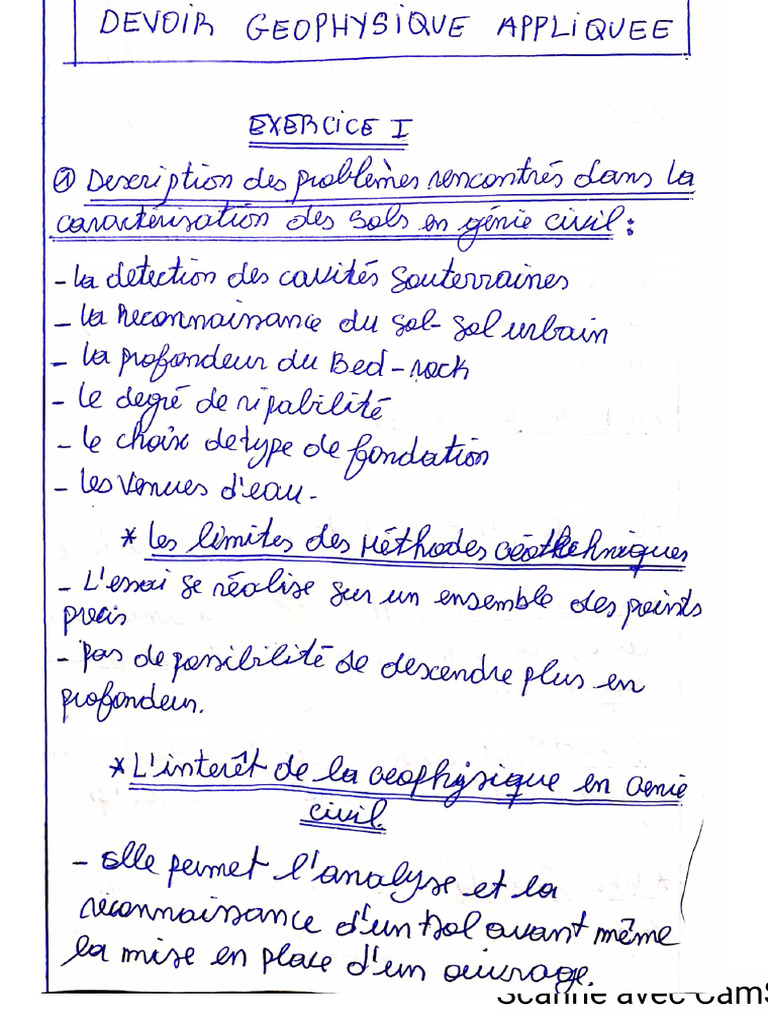 DEVOIR GEOPHYSIQUE APPLIQUEE
EXERCICE I
① Description des problèmes rencontrés dans la
caractérisation des sols en génie civil :
- la détection des cavités souterraines
- la Reconnaissance du sol-sol urbain
- la profondeur du Bed-rock
- le degré de ripabilité
- le choix de type de fondation
- les Venues d'eau.
* les limites des Méthodes Géotechniques
- L'essai se réalise sur un ensemble des points
précis
- pas de possibilité de descendre plus en
profondeur.
* L'interêt de la Geophysique en Genie
civil.
- elle permet l'analyse et la
reconnaissance d'un sol avant même
la mise en place d'un ouvrage.
Scanné avec CamS